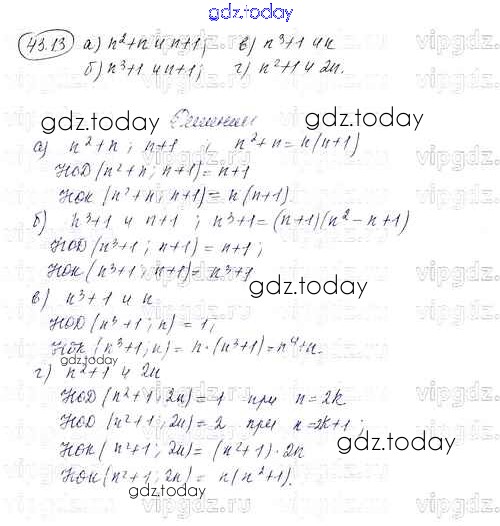 gdz.today
43.13 а) n²+n и n+1; в) n³+1 и n
б) n³+1 и n+1; г) n²+1 и 2n.
Решение
gdz.today
а) n²+n; n+1 ; n²+n=n(n+1)
НОД(n²+n; n+1)=n+1
НОК(n²+n; n+1)=n(n+1)
б) n³+1 и n+1; n³+1=(n+1)(n²-n+1)
НОД(n³+1; n+1)=n+1;
НОК(n³+1; n+1)=n³+1
gdz.today
в) n³+1 и n
НОД(n³+1; n)=1;
НОК(n³+1; n)=n·(n³+1)=n⁴+n.
г) n²+1 и 2n
НОД(n²+1; 2n)=1 при n=2k
НОД(n²+1; 2n)=2 при n=2k+1;
НОК(n²+1; 2n)=(n²+1)·2n
gdz.today
НОК(n²+1; 2n)=n(n²+1).
gdz.today
vipgdz.